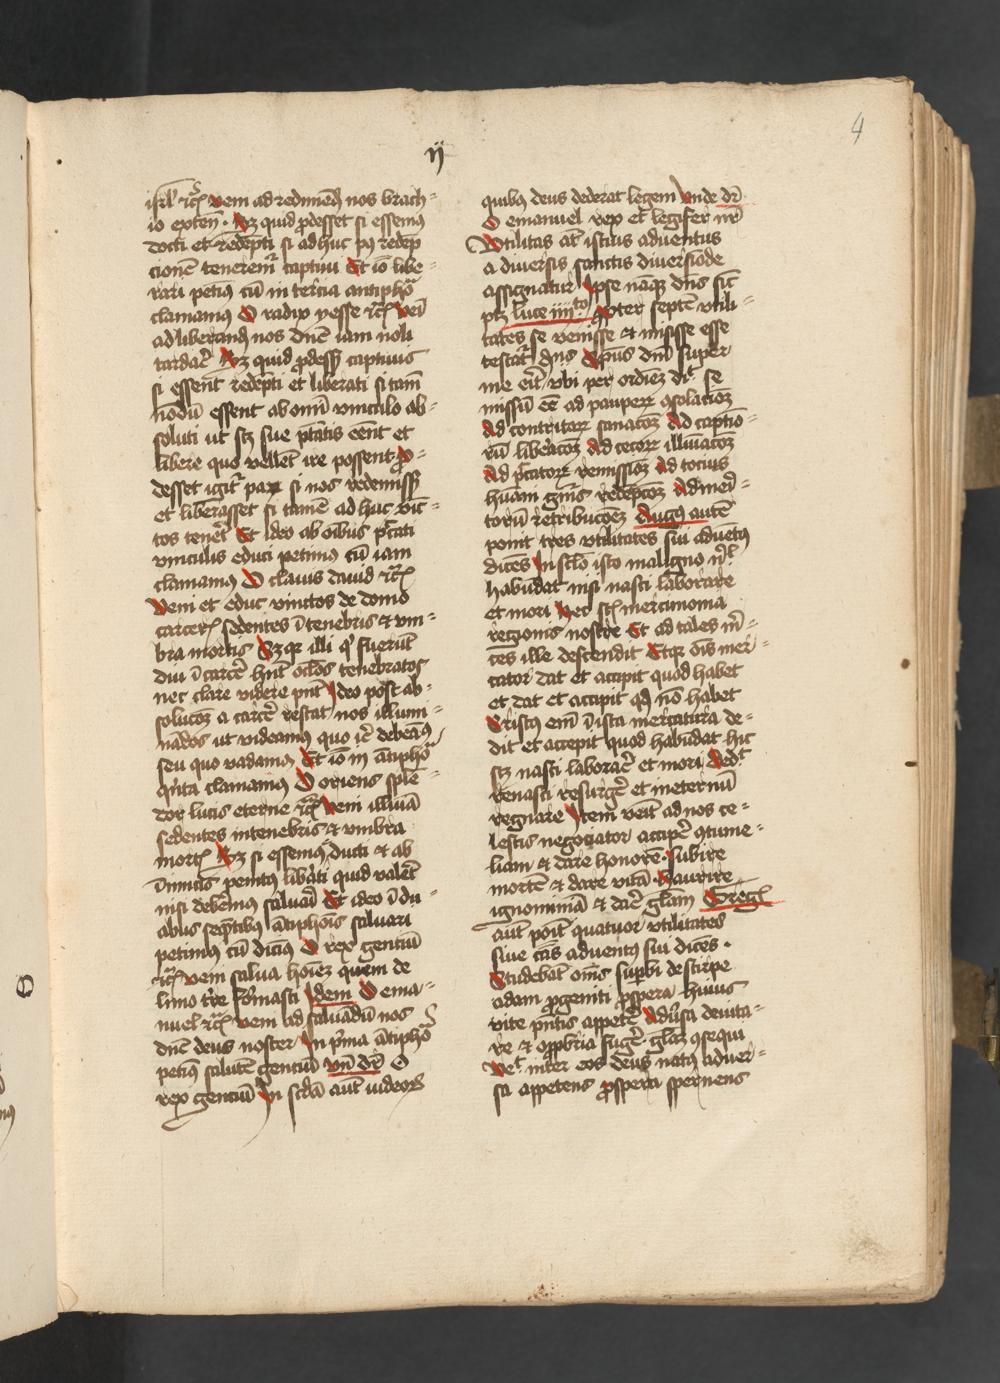 4
ij
isrl' etc̄ veni ad redimendū nos brach-
io extento. Sz quid prodesset si essemus
docti et redempti si adhuc post redemp
cionē teneremur captiui Et iō libe-
rari petimus cū in tercia antiphoa
clamamus O radix yesse etc̄ veni
ad liberandū nos dn̄e iam noli
tardare Sz quid prodesset captiuis
si essent redempti et liberati si tam̄
nōdū essent ab omni vinculo ab-
soluti ut scz sue ptātis eent et
libere quo vellēt ire possent pro-
desset igitur parum si nos redemisset
et liberasset si tamē adhuc vinc-
tos teneret Et ideo ab oībus pctāti
vinculis educi petimus cū iam
clamamus O clauis dauid etc̄
Veni et educ vinctos de domo
carceris sedentes ī tenebris et vm-
bra mortis Sz quia illi qui fuerūt
diu ī carcere hn̄t oclōs tenebratos
nec clare videre pn̄t Ideo post ab-
solucōez a carcere restat nos illumi-
nādos ut videamus quo ire debeamus
seu quo vadamus Et iō in antiphoa
quinta clamamus O oriens splē-
dor lucis eterne etc̄ Veni illuīa
sedentes in tenebris et vmbra
mortis Sz si essemus ducti et ab
inimicis penitus liberati quid valet
nisi debemus saluari Et ideo ī du-
abus sequentibus antiphōis saluari
petimus cū dicimus O rex gentiū
etc̄ veni salua hoīez quem de
limo terre formasti Idem O ema-
nuel etc̄ veni ad saluādū nos
dn̄e deus noster In prima antiphoa
petimus salutē gentiū vn̄ dr̄ O
rex gentiū In scdā aut iudeorum
quibus deus dederat legem Unde dr̄
O emanuel rex et legifer nr̄
Utilitas at̄ istius aduentus
a diuersis sanctis diuersiōde
assignatur Ipse nāque dn̄s sicut
ptz luce iiij to propter septē vtili-
tates se venisse et misisse esse
testatur dn̄s Spūs dn̄i super
me eū vbi per ordinez dicit se
missū eē ad pauperum consolacōez
Ad contritorum sanacōez Ad captiuo-
rū liberacōez Ad cecorum illuīacōez
Ad pctātorum remissiōz Ad tocius
humani gn̄is redempcōez Ad meri-
torū retribucōez Augus autē
ponit tres vtilitates sui aduētus
dices In sclo isto maligno nichil
habūdat nisi nasci laborare
et mori hec sūt mercimonia
regionis nostre Et ad tales mer-
ces ille descendit Etquia ois mer-
cator dat et accipit quod habet
et dat et accipit quod nō habet
Cristus em̄ ī ista mercatura de-
dit et accepit quod habūdat hic
scz nasci laborare et mori Dedit
renasci resurgere et ineternū
regnare Item venit ad nos ce-
lestis negociator accipe contume-
liam et dare honore. Subire
mortē et dare vitā Haurire
ignominiā et dare glām Gregs
aut ponit quatuor vtilitates
siue cās aduentus sui dices.
Studebat omīs superbi de stirpe
adam progeniti prospera huius
vite pn̄tis appetere Aduersa deuita-
re et opprobria fugere glāz consequi
Uēit inter eos deus natus aduer-
sa appetens prospera spernens